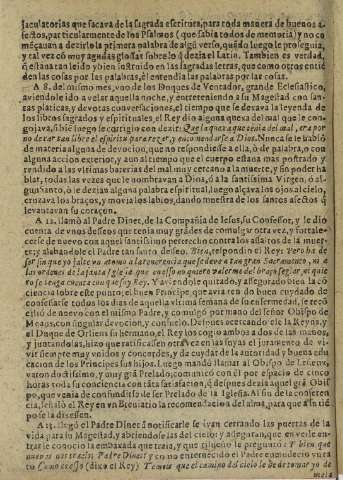 jaculatorias que sacava de la sagrada escritura, para toda manera de buenos a-
fectos, particularmente de los Psalmos (que sabia todos de memoria) y no co
mẽçauan a dezirlo la primera palabra de algũ verso, quãdo luego le proseguia,
y tal vez cõ muy agudas glossas sobre lo q̃ dezia el Latin. Tambien es verdad,
q̃ estaua tan leido y bien instruido en las sagradas letras, que como otros entiẽ
den las cosas por las palabras, èl entendia las palabras por las cosas.
A 8. del mismo mes, vno de los Duques de Ventador, grande Eclesiastico,
aviendole ido a velar aquella noche, y entreteniendo a su Magestad con san-
tas platicas, y devotas conversaciones, el tiempo que se dexava la leyenda de
los libros sagrados y espirituales, el Rey dio alguna quexa del mal que le con-
gojava, si biẽ luego se corrigio con dezir:
no dexar tan libre el espiritu para rezar, y encomendarse a Dios. Nunca se le habló
de materia alguna de devocion, que no respondiesse a ella, ò de palabra, o con
alguna accion exterior, y aun al tiempo que el cuerpo estaua mas postrado y
rendido a las vltimas baterias del mal muy cercano a la muerte, y sin poder ha
blar, todas las vezes que le nombravan a Dios, ò a la santissima Virgen, ò al-
gun Santo, ò le dezian alguna palabra espiritual, luego alçava los ojos al cielo,
cruzava los braços, y movia los labios, dando muestra de los santos afectos q̃
levantavan su coraçon.
A 12. llamò al Padre Dinet, de la Compañia de Iesus, su Confessor, y le dio
cuenta de vnos desseos que tenia muy grãdes de comulgar otra vez, y fortale-
cerse de nuevo con aquel santissimo pertrecho contra los assaltos de la muer-
te; alabandole el Padre tan santo desseo. Bien, respondio el Rey: Pero ha de
ser sin que yo falte vn atomo a la reverencia que se deve a tan gran Sacramento, ni a
las ordenes de la santa Iglesia que en esso no quiero valerme del braço seglar, ni quie
ro se tenga cuenta con que soy Rey. Y aviendole quitado, y assegurado bien la cõ
ciencia sobre este punto, el buen Principe, que ava era de buen cuydado de
confessarse todos los dias de aquella vltima semana de su enfermedad, se recõ
ciliò de nuevo con el mismo Padre, y comulgó por mano del señor Obispo de
Meaus, con singular devocion, y consuelo. Despues cercandole èl la Reyna, y
el Duque de Orliens su hermano, el Rey los cogio ambos a dos de las manos,
y juntandolas, hizo que ratificassen otra vez en las suyas el juramento de vi-
vir siempre muy vnidos y concordes, y da cuydar de la autoridad y buena edu
cacion de los Principes sus hijos. Luego mandò llamar al Obispo de Lisieux,
varon doctissimo, y muy grã Prelado, comunicò con èl por espacio de cinco
horas toda su conciencia con tãta satisfacion, q̃ despues dezia aquel grã Obis
po, que venia de confundirse de ser Prelado de la Iglesia. Al fin de la confe-
rencia, señalò el Rey en vn Breviario la recomendacion del alma, para que a su tiẽ
po se la dixessen.
A 13. llegò el Padre Dinet à notificarle se ivan cerrando las puertas de la
vida para su Magestad, y abriendose las del cielo; y a
tras le conocio la embaxada que traìa, y que
Padre Dinet?
tu Confessor (dixo el Rey) Temeis que el camino del cielo se de